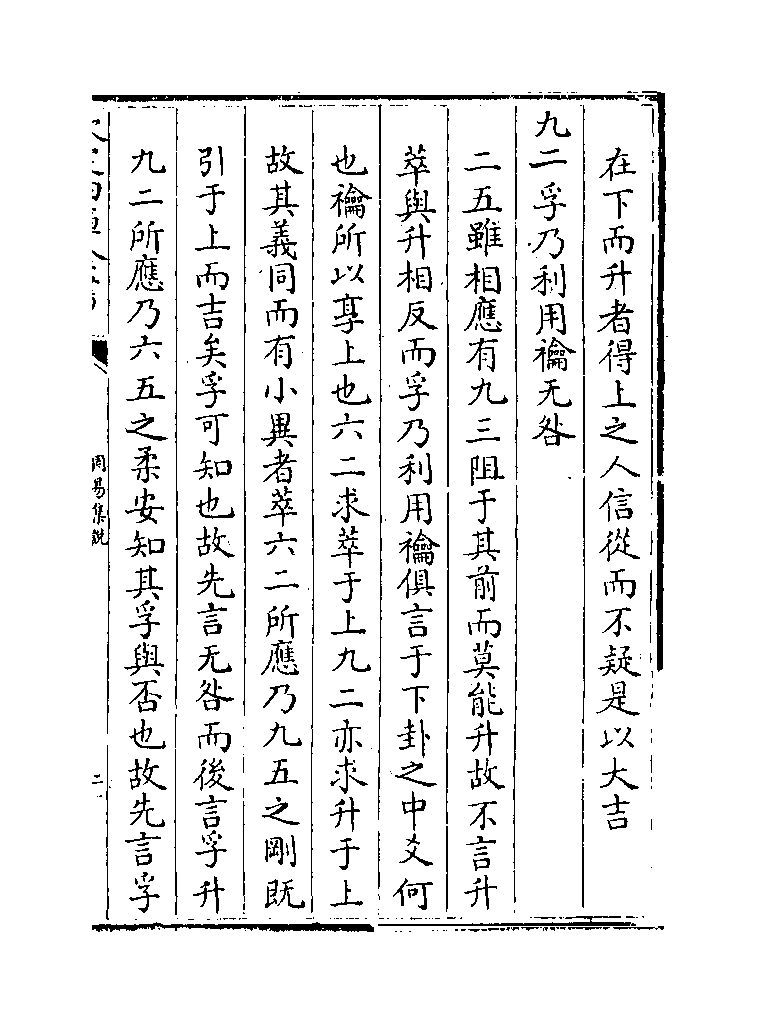 在下而升者得上之人信從而不疑是以大吉
九二孚乃利用禴无咎
二五雖相應有九三阻于其前而莫能升故不言升
萃與升相反而孚乃利用禴俱言于下卦之中爻何
也禴所以享上也六二求萃于上九二亦求升于上
故其義同而有小異者萃六二所應乃九五之剛既
引于上而吉矣孚可知也故先言无咎而後言孚升
九二所應乃六五之柔安知其孚與否也故先言孚
周易集說
二